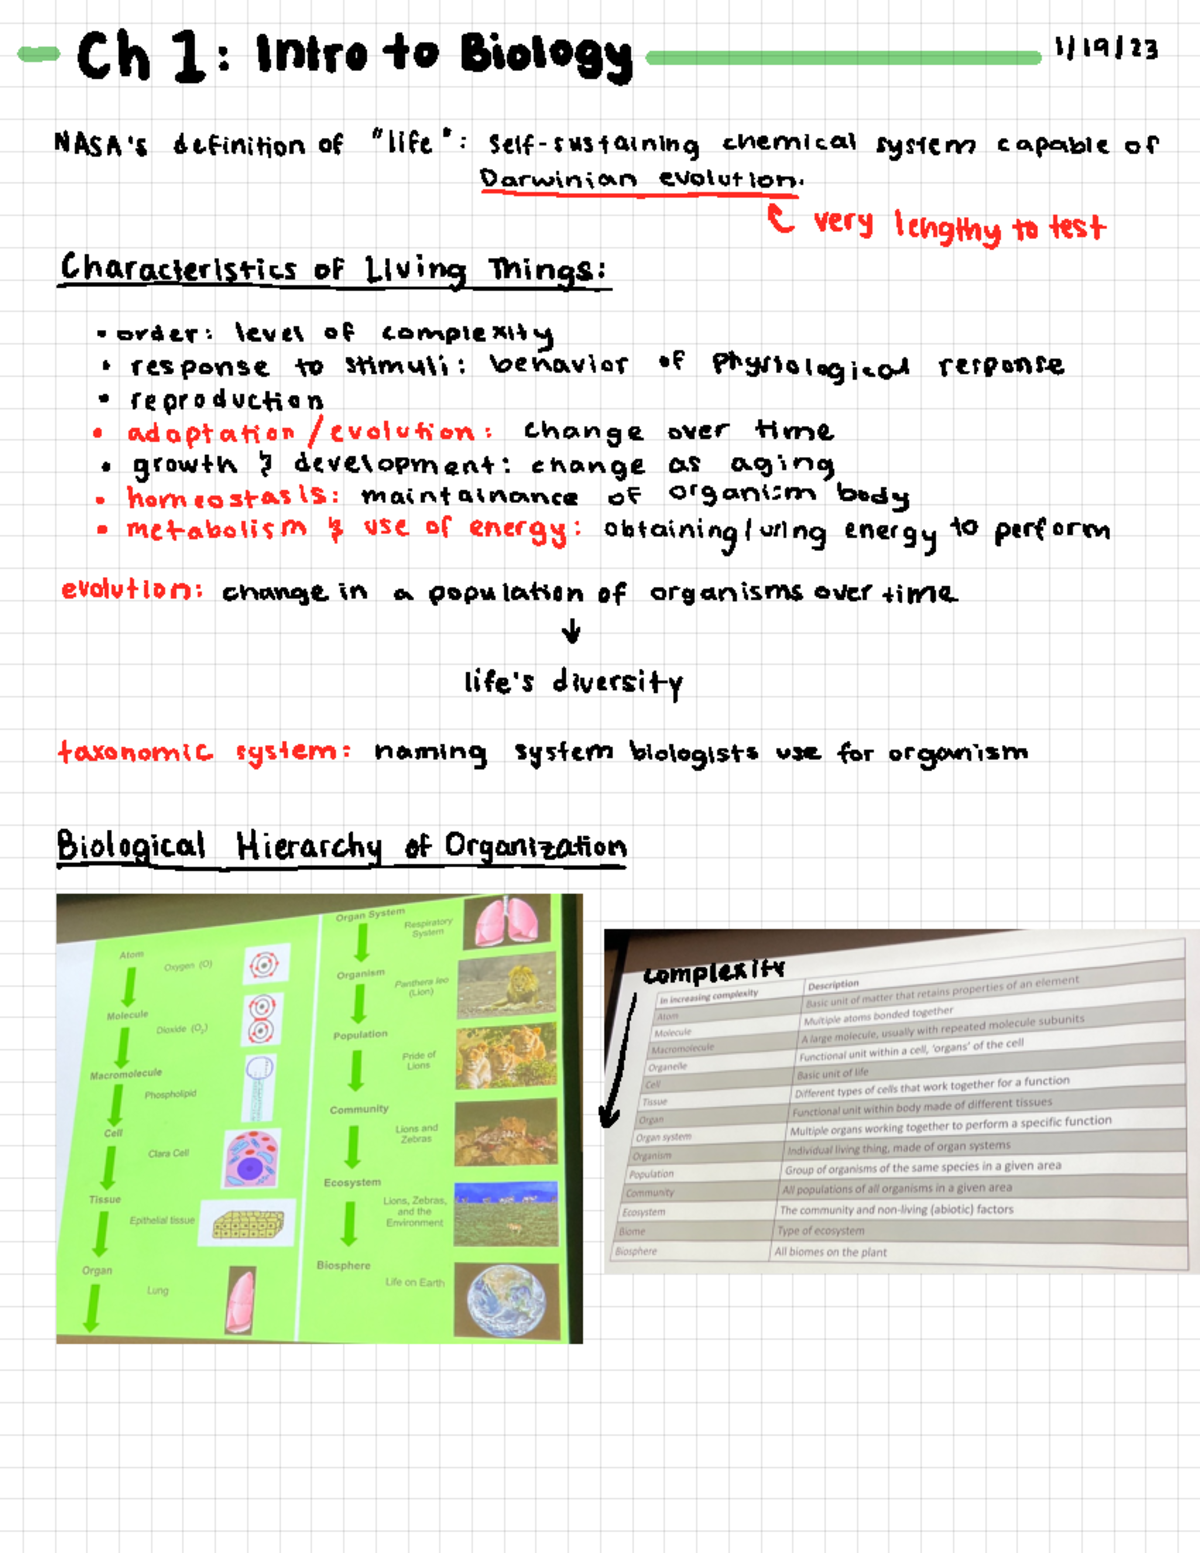 Ch 1: Intro to Biology
1/19/23
NASA's definition of "life": Self-sustaining chemical system capable of
Darwinian evolution.
very lengthy to test
Characteristics of Living Things:
• order: level of complexity
• response to stimuli: behavior of physiological response
• reproduction
• adaptation/evolution: change over time
• growth & development: change as aging
• homeostasis: maintainance of organism body
• metabolism & use of energy: obtaining/using energy to perform
evolution: change in a population of organisms over time
↓
life's diversity
taxonomic system: naming system biologists use for organism
Biological Hierarchy of Organization
Atom
Oxygen (O)
Molecule
Dioxide (O₂)
Macromolecule
Phospholipid
Cell
Clara Cell
Tissue
Epithelial tissue
Organ
Lung
Organ System
Respiratory
System
Organism
Panthera leo
(Lion)
Population
Pride of
Lions
Community
Lions and
Zebras
Ecosystem
Lions, Zebras,
and the
Environment
Biosphere
Life on Earth
complexity
In increasing complexity Description
Atom Basic unit of matter that retains properties of an element
Molecule Multiple atoms bonded together
Macromolecule A large molecule, usually with repeated molecule subunits
Organelle Functional unit within a cell, 'organs' of the cell
Cell Basic unit of life
Tissue Different types of cells that work together for a function
Organ Functional unit within body made of different tissues
Organ system Multiple organs working together to perform a specific function
Organism Individual living thing, made of organ systems
Population Group of organisms of the same species in a given area
Community All populations of all organisms in a given area
Ecosystem The community and non-living (abiotic) factors
Biome Type of ecosystem
Biosphere All biomes on the plant